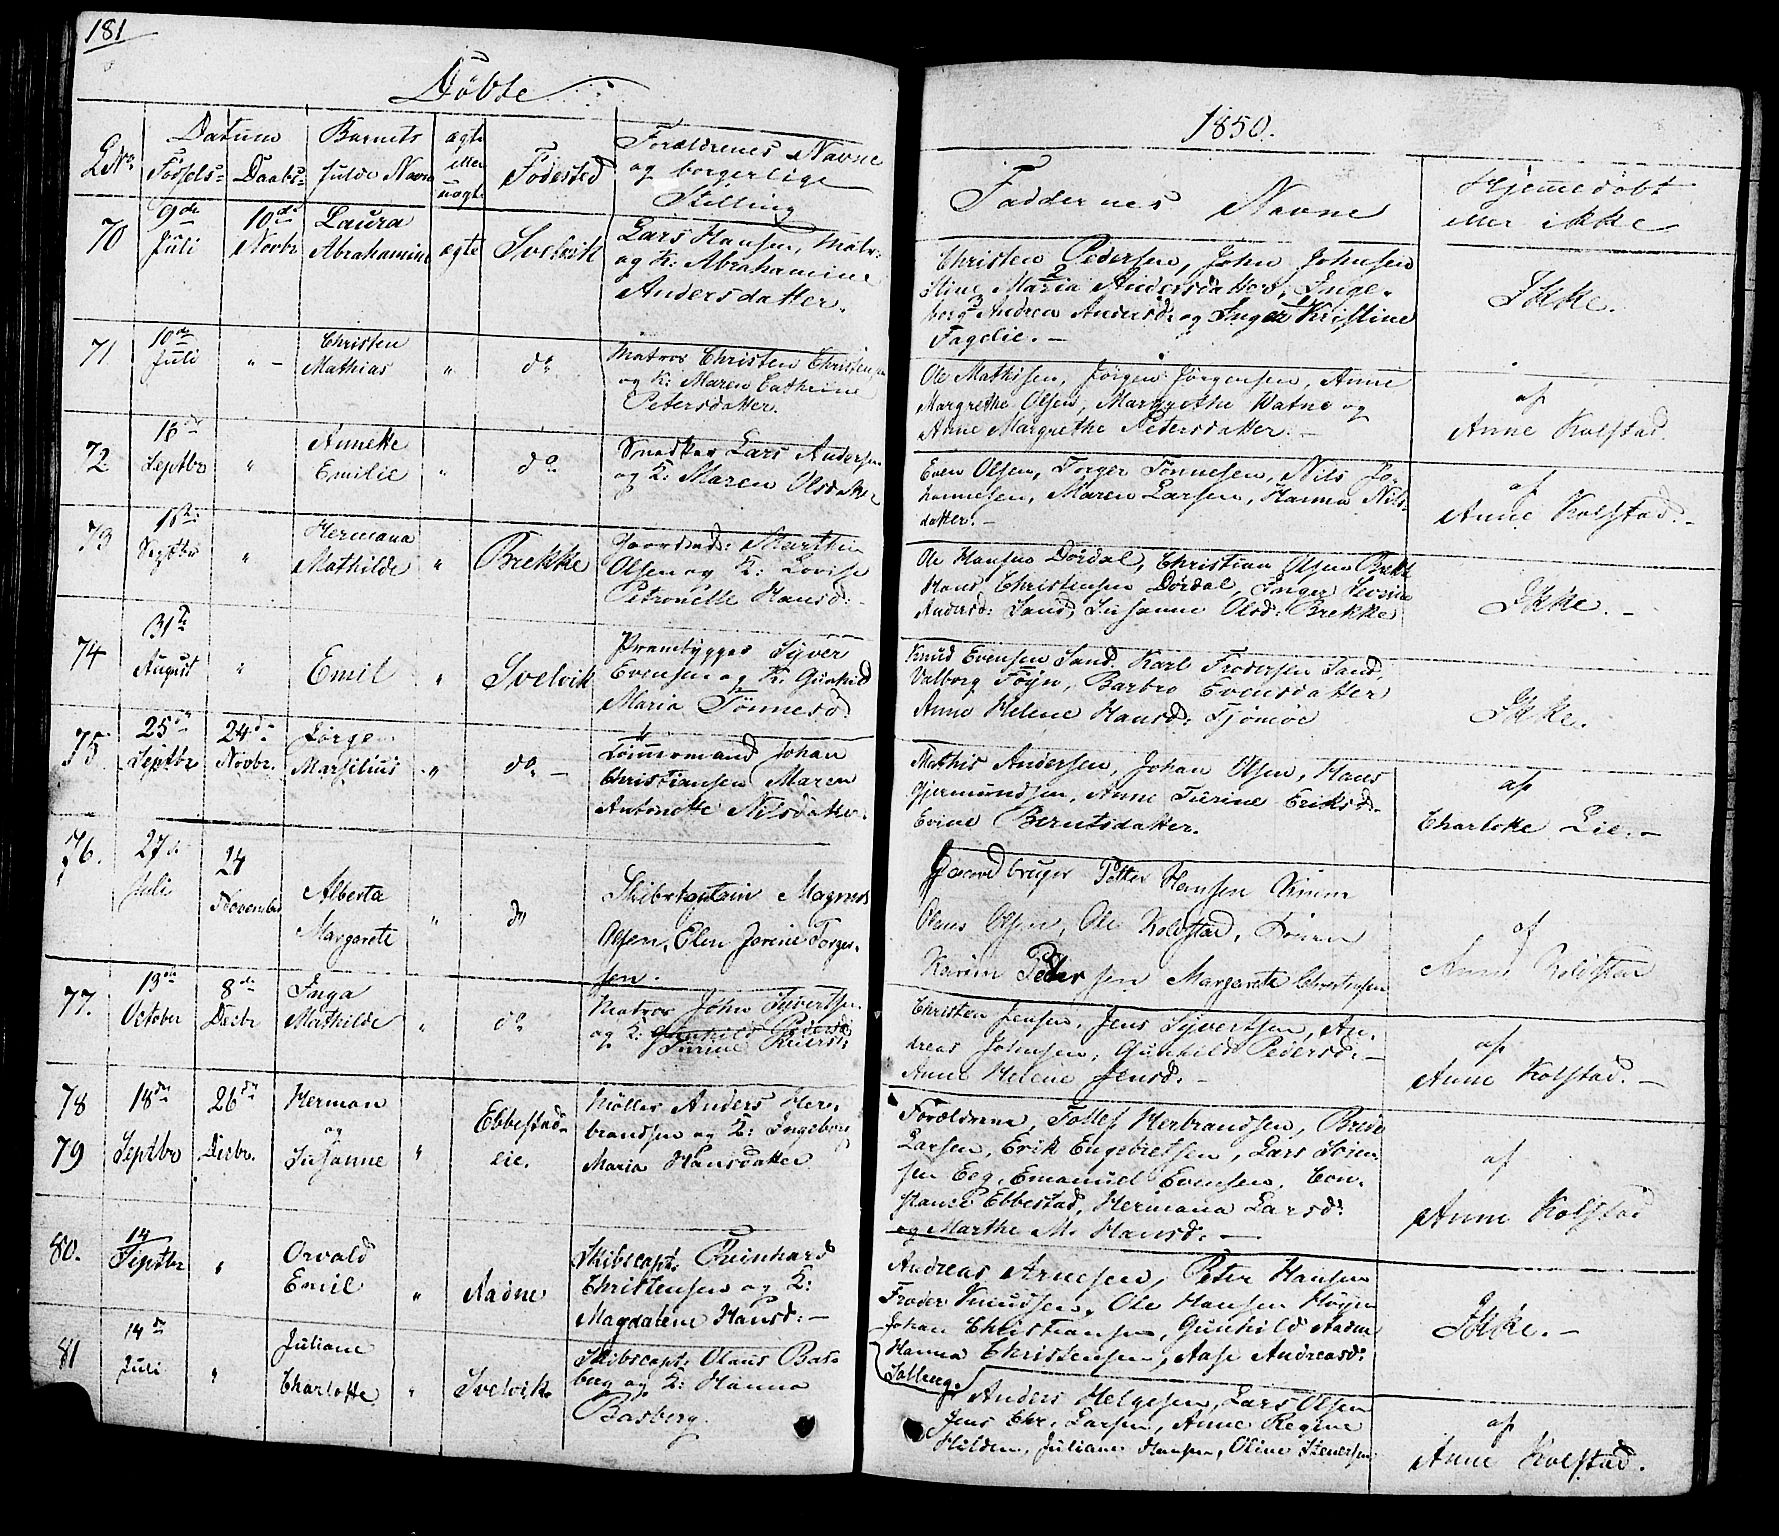 181
Döbte
1850.
LNo
Datum
Fødsels-
Daabs-
Barnets
fulde Navn
ægte
eller
uægte
Födested
Forældrenes Navne
og borgerlige
Stilling
Faddernes Navne
Hjemmedöbt
eller ikke
70
9de
Juli
10de
Novbr
Laura
Abrahamine
ægte
Svelvik
Lars Hansen, Matr:
og K: Abrahamine
Andersdatter.
Christen Pedersen, John Johnsen
Stine Maria Andersdatter, Inge-
borg Andrea Andersd: og Inger Kristine
Fagelie. -
Ikke.
71
10de
Juli
" -
Christen
Mathias
"
do
Matros Christen Christensen
og K: Maren Cathrine
Petersdatter.
Ole Mathisen, Jörgen Jörgensen, Anne
Margrethe Olsen, Margrethe Watne og
Anne Margrethe Petersdatter. -
af
Anne Kolstad.
72
Septbr
"
Annette
Emilie
"
do
Snedker Lars Andersen
og K: Maren Olsdatter
Even Olsen, Torger Tonnesen, Nils Jo-
hannesen, Maren Larsen, Hanna Nils-
datter. -
af
Anne Kolstad. -
73
Septbr
"
Hermana
Mathilde
"
Brekke
Gaardmd: Marthin
Olsen og K: Lovise
Petronelle Hansd: -
Ole Hansen Dördal, Christian Olsen Brekke
Hans Christensen Dördal, Inger
Andersd: Sand, Susanne Olsd: Brekke
Ikke. -
74
31te
August
"
Emil
"
Svelvik
Prambygger Syver
Evensen og K: Gunhild
Maria Tönnesd:
Knud Evensen Sand, Karl Frodersen Sand,
Valborg Föyn, Barbro Evensdatter
Anne Helene Hansd: Tjömöe
Ikke.
75
25de
Septbr
24de
Novbr.
Jörgen
Marsilius
"
do -
Tömmermand Johan
Christiansen Maren
Antonette Nilsdatter.
Mathis Andersen, Johan Olsen, Hans
Gjermundsen, Anne Turine Eriksd:
Evine Berntsdatter.
af
Charlotte Lie. -
76.
27de
Juli
24
November
Alberta
Margarete
"
do
Skibskaptein Magnus
Olsen, Elen Jorine Torger-
sen.
Gaardbruger Petter Hansen
Olaus Olsen, Ole Kolstad,
Karen Pedersen Margarete Christensen
af
Anne Kolstad
77.
13de
October
8de
Decbr
Inga
Mathilde
"
do
Matros John Syvertsen
og K: Gunhild Pedersd:
Turine
Christen Jensen, Jens Syvertsen, An-
dreas Johnsen, Gunhild Pedersd: -
Anne Helene Jensd. -
af
Anne Kolstad. -
78
79
18de
Septbr
26de
Decbr.
Herman
og
Susanne
"
Ebbestad-
eie.
Möller Anders Her-
brandsen og K: Ingeborg
Maria Hansdatter
Forældrene, Tollef Herbrandsen,
Larsen, Erik Engebretsen, Lars Sören-
sen Eeg, Emanuel Evensen, Con-
stance Ebbestad, Hermana Larsd:
og Marthe M. Hansd. -
af
Anne Kolstad
80.
14
Septbr
"
Orvald
Emil
"
Aadne
Skibscapt: Reinhard
Christensen og K:
Magdalene Hansd: -
Andreas Arnesen, Peter Hansen
Froder Knudsen, Ole Hansen Höyen
Johan Christiansen, Gunhild Aadne
Hanna Christensen, Aase Andreasd:
Solberg.
Ikke. -
81
14de
Juli
"
Juliane
Charlotte
"
Svelvik
Skibscapt: Olaus Bas-
berg og K: Hanna
Basberg.
Anders Helgesen, Lars Olsen
Jens Chr. Larsen, Anne Regine
Hilden, Juliane Hansen, Oline Stenersen
af
Anne Kolstad.